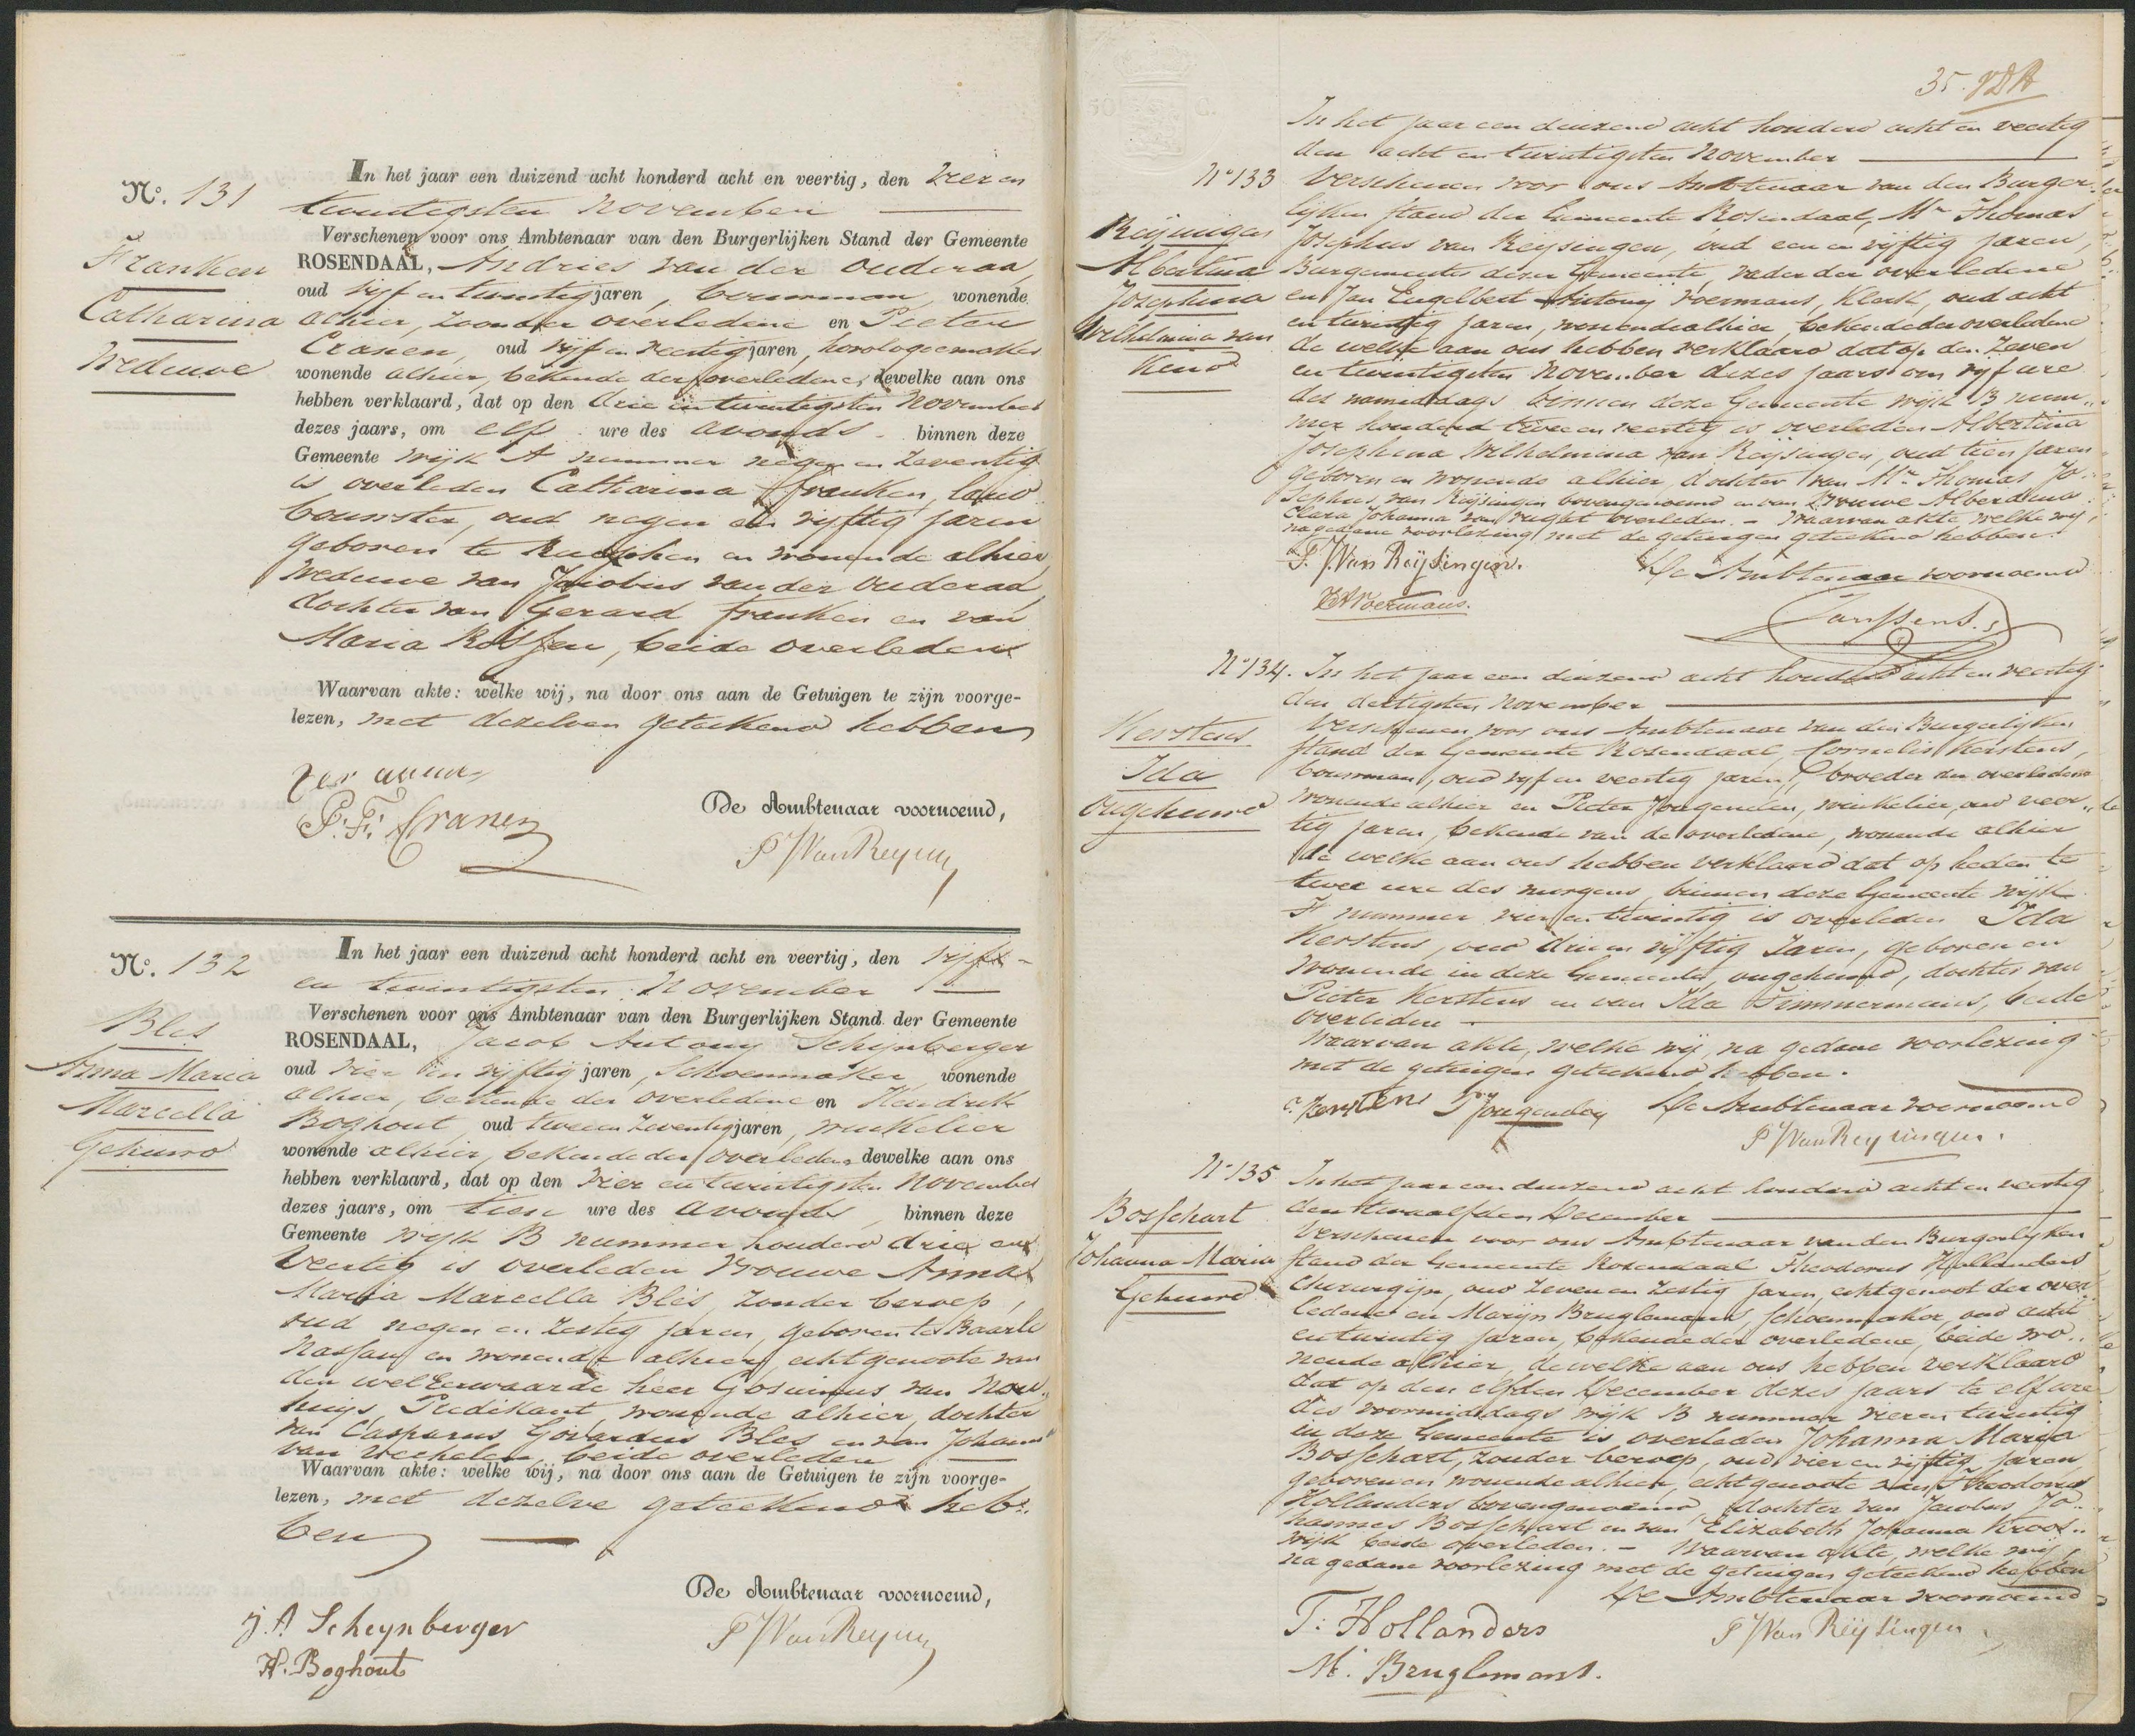 No. 131
Franken
Catharina
Weduwe
In het jaar een duizend acht honderd acht en veertig, den Vier en
twintigsten November
Verschenen voor ons Ambtenaar van den Burgerlijken Stand der Gemeente
ROSENDAAL, Andries van der Ouderaa,
oud vijf en twintig jaren, bouwman, wonende
alhier, zoon der overledene en Pieter
Cranen, oud vijf en veertig jaren, horologiemaker
wonende alhier, bekende der overledene, dewelke aan ons
hebben verklaard, dat op den drie en twintigsten November
dezes jaars, om elf ure des avonds binnen deze
Gemeente wijk A nummer negen en zeventig
is overleden Catharina Franken, land
bouwster, oud negen en vijftig jaren
geboren te Rucphen en wonende alhier,
weduwe van Jacobus van der Ouderaa,
dochter van Gerard Franken en van
Maria, beide overleden
Waarvan akte: welke wij, na door ons aan de Getuigen te zijn voorge-
lezen, met dezelven geteekend hebben
P. F. Cranen
De Ambtenaar voornoemd,
No. 132
Bles
Anna Maria
Marcella
Gehuwd
In het jaar een duizend acht honderd acht en veertig, den vijf
en twintigsten November
Verschenen voor ons Ambtenaar van den Burgerlijken Stand der Gemeente
ROSENDAAL, Jacob Antony Schijnberger
oud vier en vijftig jaren, Schoenmaker wonende
alhier, bekende der overledene en Hendrik
Boghout, oud twee en zeventig jaren, winkelier
wonende alhier, bekende der overledene dewelke aan ons
hebben verklaard, dat op den vier en twintigsten November
dezes jaars, om tien ure des avonds, binnen deze
Gemeente wijk B nummer honderd drie en
veertig is overleden Vrouwe Anna
Maria Marcella Bles, zonder beroep,
oud negen en zestig jaren, geboren te Baarle
Nassau en wonende alhier, echtgenoote van
den welEerwaarde heer Gosuinus van Nou„
huijs, Predikant, wonende alhier, dochter
van Casparus Govardus Bles en van Johanna
van Mechelen, beide overleden
Waarvan akte: welke wij, na door ons aan de Getuigen te zijn voorge-
lezen, met dezelve geteekend heb„
ben
De Ambtenaar voornoemd,
J. A Scheynberger
H. Boghout
35.
No 133
Reijsingen
Albertina
Josephina
Wilhelmina van
Kind
In het jaar een duizend acht honderd acht en veertig
den acht en twintigsten November
Verschenen voor ons Ambtenaar van den Burger
lijken stand der Gemeente Rosendaal, Mr Thomas
Josephus van Reijsingen, oud een en vijftig jaren,
Burgemeester dezer Gemeente, vader der overledene
en Jan Engelbert Antony Voermans, Klerk, oud acht
en twintig jaren, wonende alhier bekende der overledene
de welke aan ons hebben verklaard dat op den Zeven
en twintigsten November dezes jaars om vijf ure
des namiddags binnen deze Gemeente wijk B num„
mer honderd twee en veertig is overleden Albertina
Josephina Wilhelmina van Reijsingen, oud tien jaren
geboren en wonende alhier, dochter van Mr Thomas Jo„
sephus van Reijsingen bovengenoemd en van Vrouwe Alberdina
Clara Johanna van Vught overleden. - Waarvan akte, welke wij,
na gedane voorlezing met de getuigen geteekend hebben.
T. J. Van Reijsingen.
Voermans.
De Ambtenaar voornoemd
Janssens.
No 134.
Kerstens
Ida
Ongehuwd
In het jaar een duizend acht honderd acht en veertig
den dertigsten November
Verschenen voor ons Ambtenaar van den Burgerlijken
stand der Gemeente Rosendaal, Cornelis Kerstens,
bouwman, oud vijf en veertig jaren, broeder der overledene
wonende alhier en Pieter Jongenelen, winkelier, oud veer„
tig jaren, bekende van de overledene, wonende alhier
de welke aan ons hebben verklaard dat op heden te
twee ure des morgens, binnen deze Gemeente wijk
F nummer vier en twintig is overleden Ida
Kerstens, oud drie en vijftig Jaren, geboren en
wonende in deze Gemeente, ongehuwd, dochter van
Pieter Kerstens en van Ida Timmermans, beide
overleden
Waarvan akte, welke wij, na gedane voorlezing
met de getuigen geteekend hebben.
C. Kerstens
De Ambtenaar voornoemd
P J Van Reysingen.
No 135
Bosschart
Johanna Maria
Gehuwd
In het jaar een duizend acht honderd acht en veertig
den twaalfden December
Verschenen voor ons Ambtenaar van den Burgerlyken
stand der Gemeente Rosendaal Theodorus Hollanders
Chirurgijn, oud zeven en zestig jaren, echtgenoot der over„
ledene en Marijn Bruglemans, schoenmaker, oud acht
en twintig jaren, bekende der overledene, beide wo„
nende alhier, dewelke aan ons hebben verklaard
dat op den elfden December dezes jaars te elf ure
des voormiddags wijk B nummer vier en twintig
in deze Gemeente is overleden Johanna Maria
Bosschart, zonder beroep, oud vier en vijftig jaren,
geboren en wonende alhier, echtgenoote van Theodorus
Hollanders bovengenoemd, dochter van Jacobus Jo„
hannes Bosschart en van Elizabeth Johanna Kroos„
wijk beide overleden. - Waarvan akte, welke wij
na gedane voorlezing met de getuigen geteekend hebben
De Ambtenaar voornoemd
T. Hollanders
P J Van Reijsingen
M. Bruglemans.